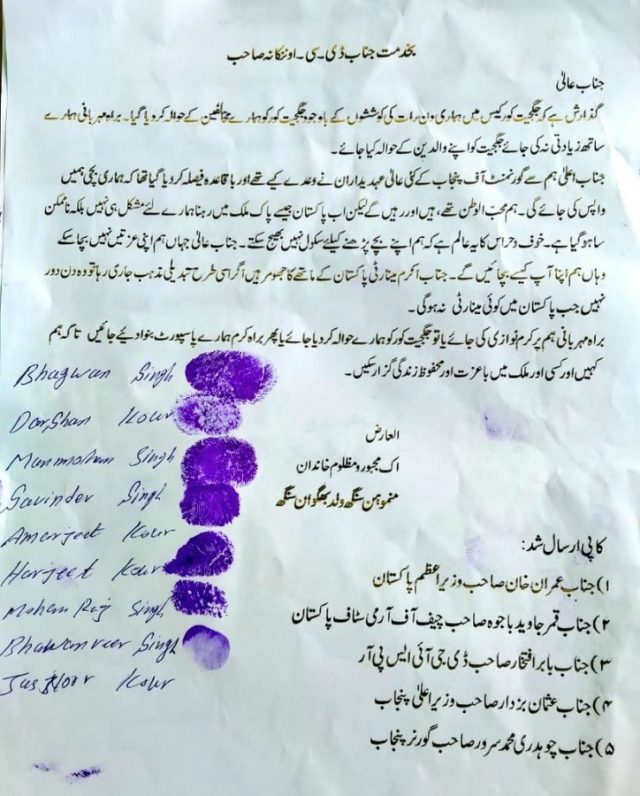 بخدمت جناب ڈی ۔ سی ۔ او ننکانہ صاحب
جناب عالیٰ
گذارش ہے کہ جگجیت کور کیس میں ہماری دن رات کی کوششوں کے باوجود جگجیت کور کو ہمارے مخالفین کے حوالہ کردیا گیا۔ براہ مہربانی ہمارے
ساتھ زیادتی نہ کی جائے جگجیت کو اپنے والدین کے حوالہ کیا جائے۔
جناب اعلیٰ ہم سے گورنمنٹ آف پنجاب کے کئی عالی عہدیداران نے وعدے کیے تھے اور باقاعدہ فیصلہ کردیا گیا تھا کہ ہماری بچی ہمیں
واپس کی جائے گی۔ ہم محب الوطن تھے، ہیں اور رہیں گے لیکن اب پاکستان جیسے پاک ملک میں رہنا ہمارے لئے مشکل ہی نہیں بلکہ ناممکن
سا ہو گیا ہے۔ خوف و حراس کا یہ عالم ہے کہ ہم اپنے بچے پڑھنے کیلئے سکول نہیں بھیج سکتے۔ جناب عالیٰ جہاں ہم اپنی عزتیں نہیں بچا سکے
وہاں ہم اپنا آپ کیسے بچائیں گے۔ جناب اکرم مینارٹی پاکستان کے ماتھے کا جھومر ہیں اگر اسی طرح تبدیلی مذہب جاری رہا تو وہ دن دور
نہیں جب پاکستان میں کوئی مینارٹی نہ ہوگی۔
براہ مہربانی ہم پر کرم نوازی کی جائے یا تو جگجیت کور کو ہمارے حوالہ کردیا جائے یا پھر براہ کرم ہمارے پاسپورٹ بنوا دیئے جائیں تاکہ ہم
کہیں اور کسی اور ملک میں باعزت اور محفوظ زندگی گزار سکیں۔
العارض
اک مجبور و مظلوم خاندان
منموہن سنگھ ولد بھگوان سنگھ
Bhagwan Singh
Darshan Kour
Manmohan Singh
Savinder Singh
Amarjeet Kour
Harjeet Kour
Mohan Raj Singh
Bhawanveer Singh
Kour
کاپی ارسال شد:
۱) جناب عمران خان صاحب وزیراعظم پاکستان
۲) جناب قمر جاوید باجوہ صاحب چیف آف آرمی سٹاف پاکستان
۳) جناب بابر افتخار صاحب ڈی جی آئی ایس پی آر
۴) جناب عثمان بزدار صاحب وزیر اعلیٰ پنجاب
۵) جناب چوہدری محمد سرور صاحب گورنر پنجاب